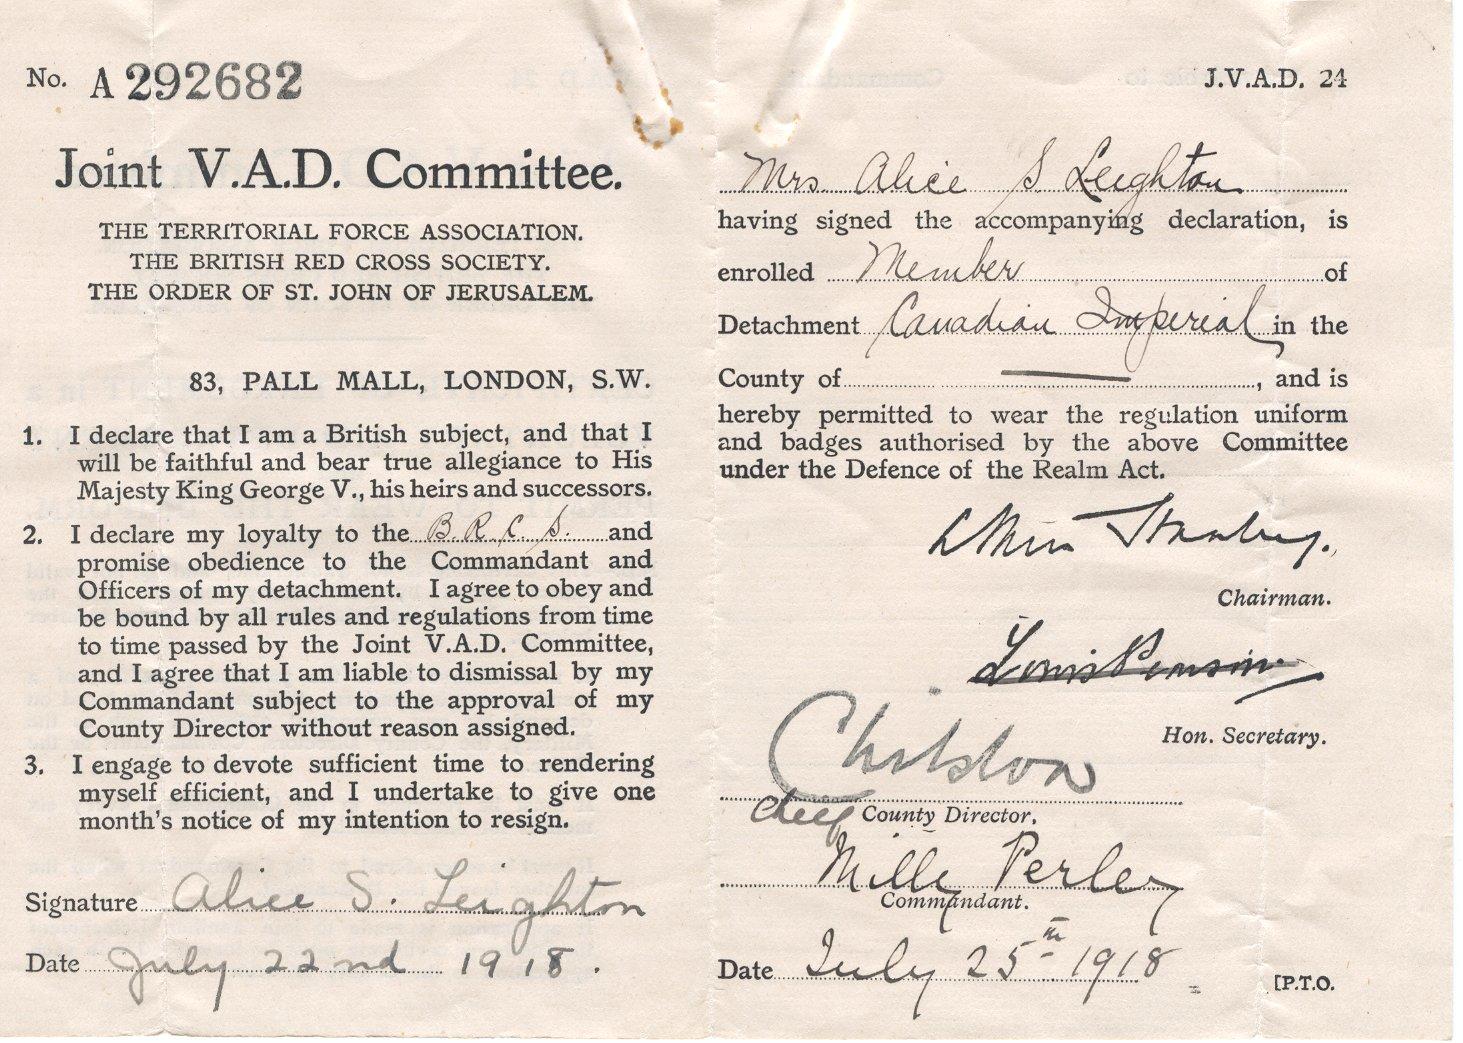 No. A 292682
Joint V.A.D. Committee.
THE TERRITORIAL FORCE ASSOCIATION.
THE BRITISH RED CROSS SOCIETY.
THE ORDER OF ST. JOHN OF JERUSALEM.
83, PALL MALL, LONDON, S.W.
1. I declare that I am a British subject, and that I
will be faithful and bear true allegiance to His
Majesty King George V., his heirs and successors.
2. I declare my loyalty to the B.R.C.S. and
promise obedience to the Commandant and
Officers of my detachment. I agree to obey and
be bound by all rules and regulations from time
to time passed by the Joint V.A.D. Committee,
and I agree that I am liable to dismissal by my
Commandant subject to the approval of my
County Director without reason assigned.
3. I engage to devote sufficient time to rendering
myself efficient, and I undertake to give one
month's notice of my intention to resign.
Signature Alice S. Leighton
Date July 22nd 1918.
J.V.A.D. 24
Mrs Alice S Leighton
having signed the accompanying declaration, is
enrolled Member of
Detachment Canadian Imperial in the
County of , and is
hereby permitted to wear the regulation uniform
and badges authorised by the above Committee
under the Defence of the Realm Act.
Stanley.
Chairman.
Hon. Secretary.
Chief County Director.
Perley
Commandant.
Date July 25th 1918
[P.T.O.